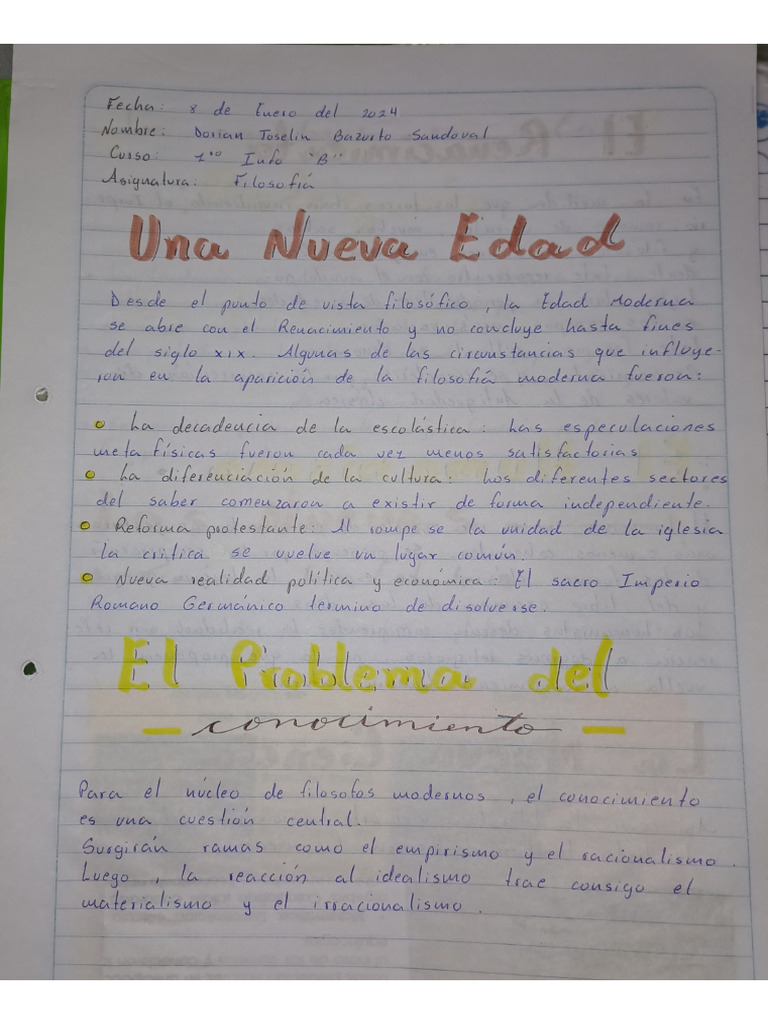 Fecha: 8 de Enero del 2024
Nombre: Dorian Joselin Bazurto Sandoval
Curso: 1ro Info "B"
Asignatura: Filosofiá
Una Nueva Edad
Desde el punto de vista filosófico, la Edad Moderna
se abre con el Renacimiento y no concluye hasta fines
del siglo xix. Algunas de las circunstancias que influye-
ron en la aparición de la filosofiá moderna fueron:
La decadencia de la escolástica: Las especulaciones
metafísicas fueron cada vez menos satisfactorias
La diferenciación de la cultura: Los diferentes sectores
del saber comenzaron a existir de forma independiente.
Reforma protestante: Al rompe se la unidad de la iglesia
la critica se vuelve un lugar común.
Nueva realidad política y económica: El sacro Imperio
Romano Germánico termino de disolverse.
El Problema del
conocimiento
Para el núcleo de filosofos modernos, el conocimiento
es una cuestión central.
Surgirán ramas como el empirismo y el racionalismo.
Luego, la reacción al idealismo trae consigo el
materialismo y el irracionalismo.